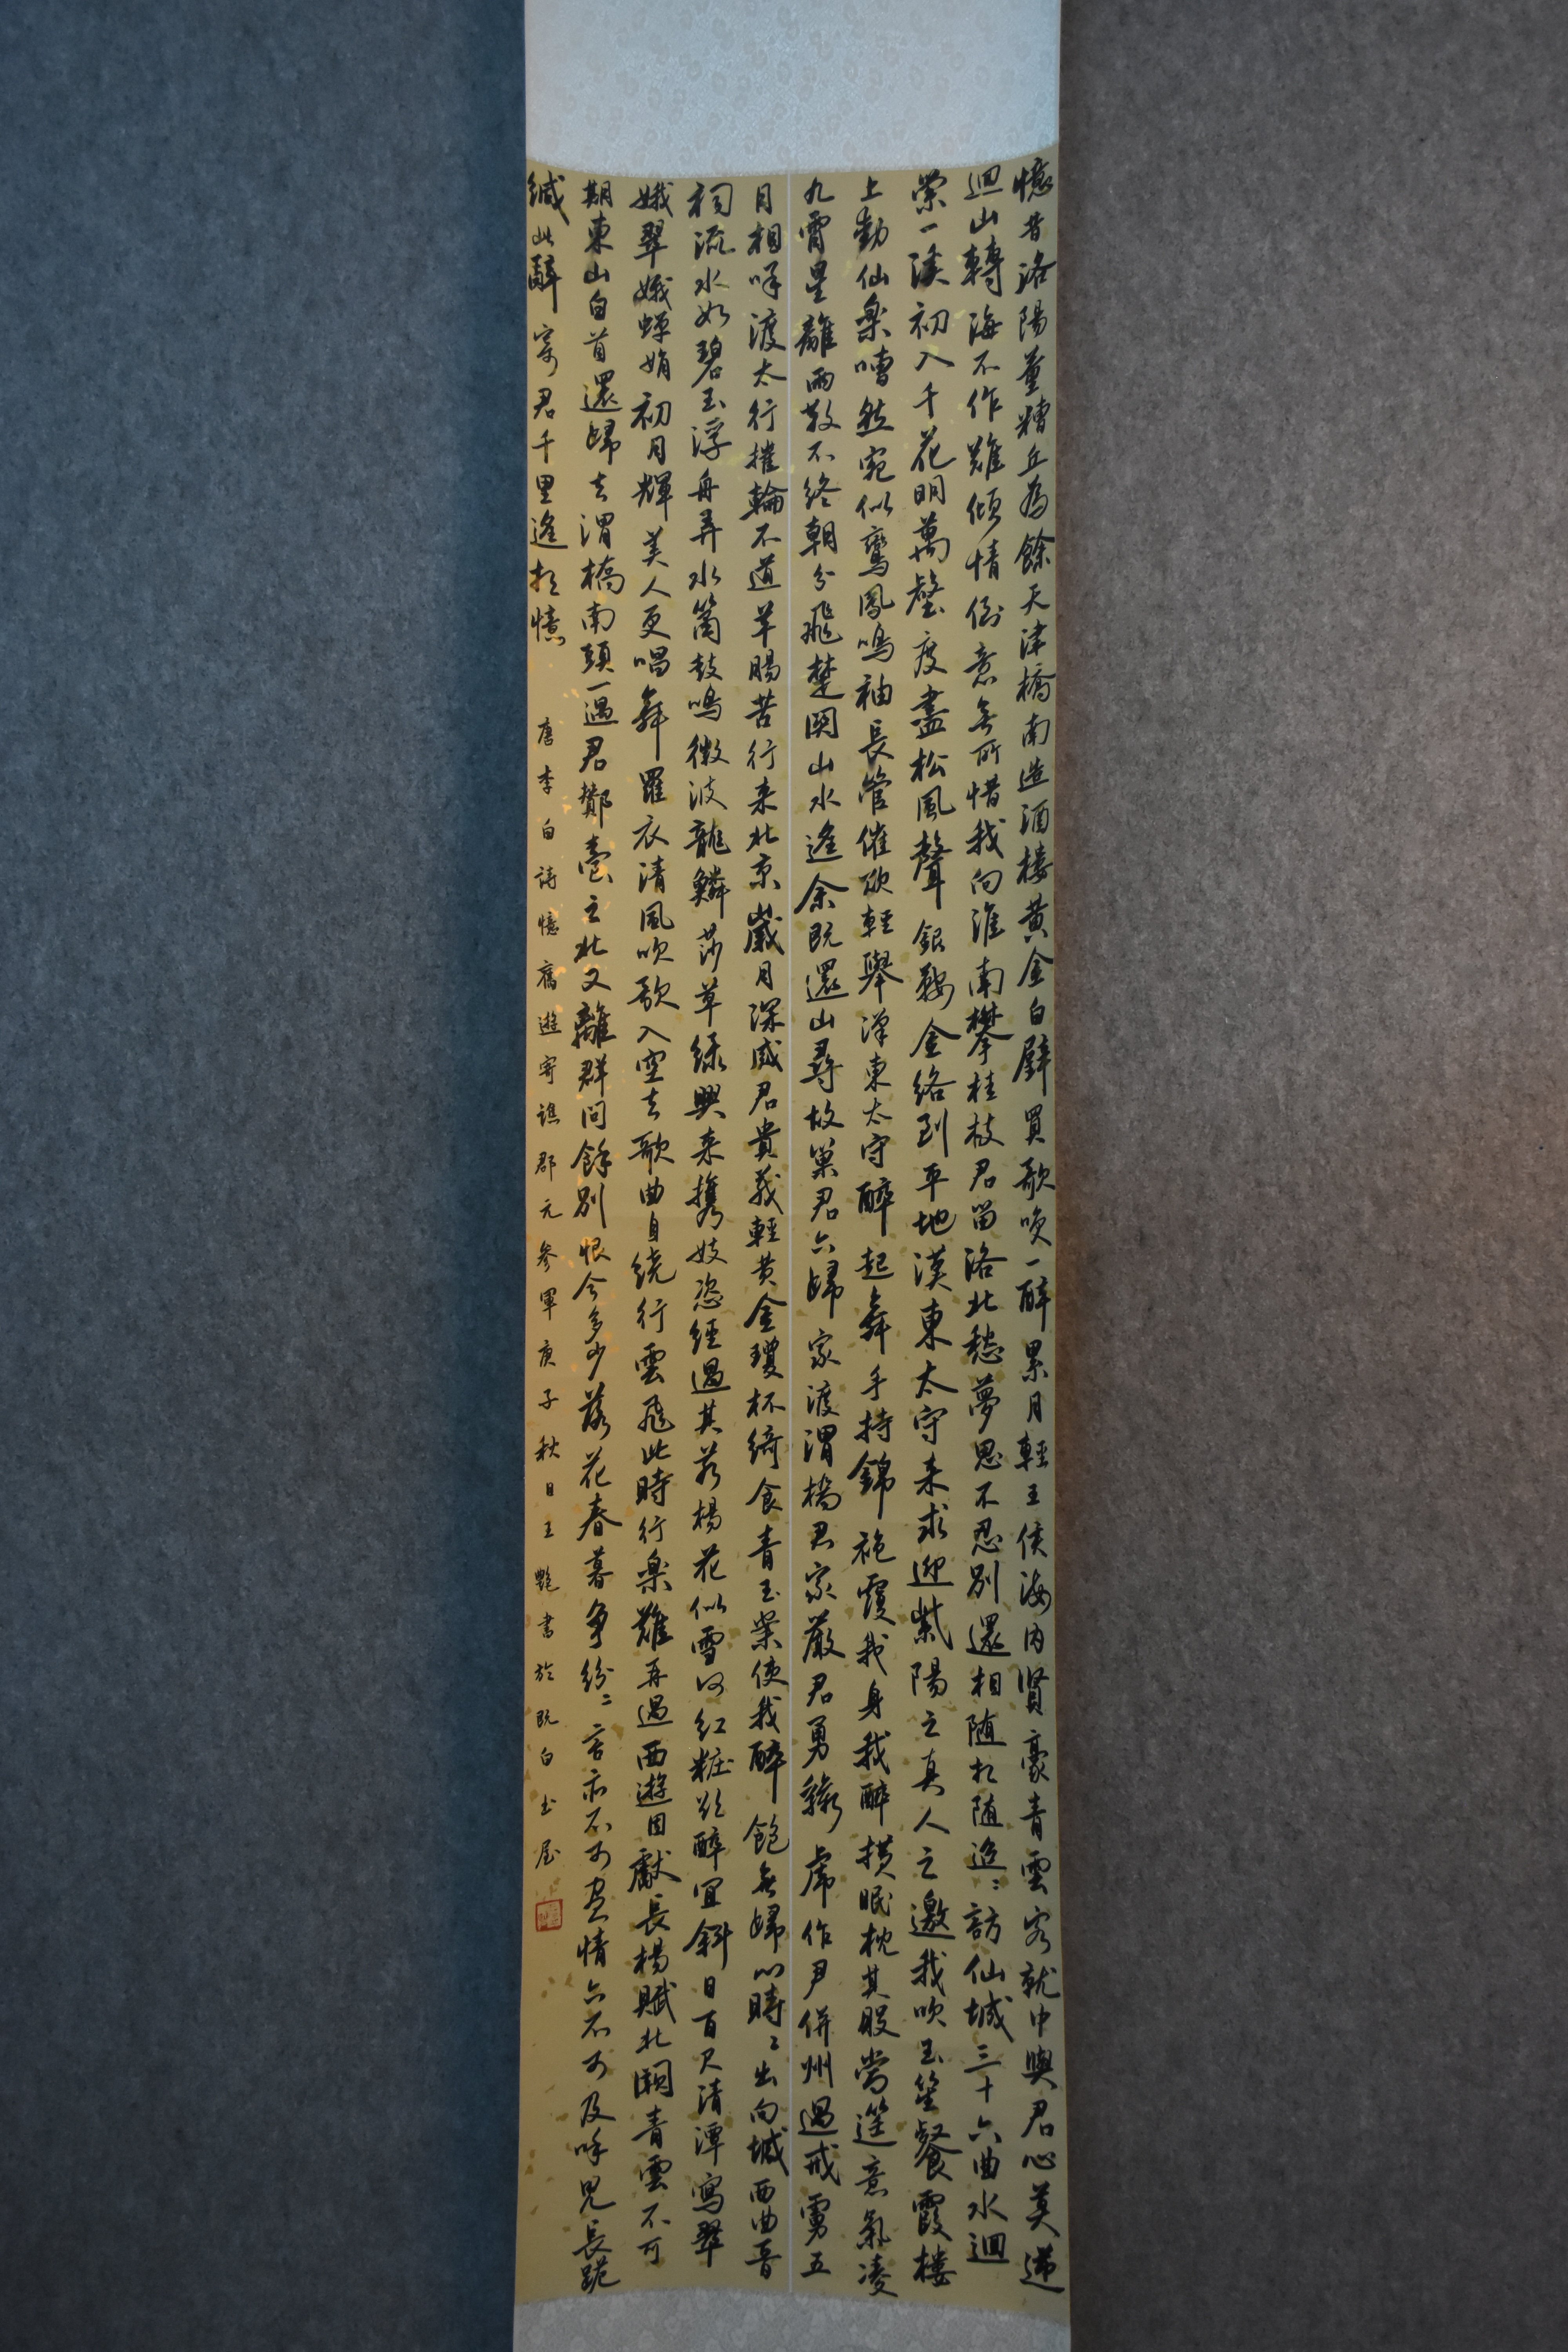 憶昔洛陽董糟丘為餘天津橋南造酒樓黃金白璧買歌笑一醉累月輕王侯海內賢豪青雲客就中與君心莫逆
迴山轉海不作難傾情倒意無所惜我向淮南攀桂枝君留洛北愁夢思不忍別還相隨相隨迢〻訪仙城三十六曲水迴
縈一溪初入千花明萬壑度盡松風聲銀鞍金絡到平地漢東太守來求迎紫陽之真人之邀我吹玉笙餐霞樓
上動仙樂嘈然宛似鸞鳳鳴袖長管催欲輕舉漢東太守醉起舞手持錦袍覆我身我醉橫眠枕其股當筵意氣凌
九霄星離雨散不終朝分飛楚關山水遙余既還山尋故巢君亦歸家渡渭橋君家嚴君勇貔虎作尹併州遏戎虜五
月相呼渡太行摧輪不道羊腸苦行來北京歲月深感君貴義輕黃金瓊杯綺食青玉案使我醉飽無歸心時〻出向城西曲晉
祠流水如碧玉浮舟弄水簫鼓鳴微波龍鱗莎草綠興來攜妓恣經過其若楊花似雪何紅粧欲醉宜斜日百尺清潭寫翠
娥翠娥嬋娟初月輝美人更唱舞羅衣清風吹歌入空去歌曲自繞行雲飛此時行樂難再遇西遊因獻長楊賦北闕青雲不可
期東山白首還歸去渭橋南頭一遇君酇臺之北又離群問餘別恨今多少落花春暮爭紛〻言亦不可盡情亦不可及呼兒長跪
緘此辭寄君千里遙相憶 唐李白詩憶舊遊寄譙郡元參軍庚子秋日王艷書於既白書屋